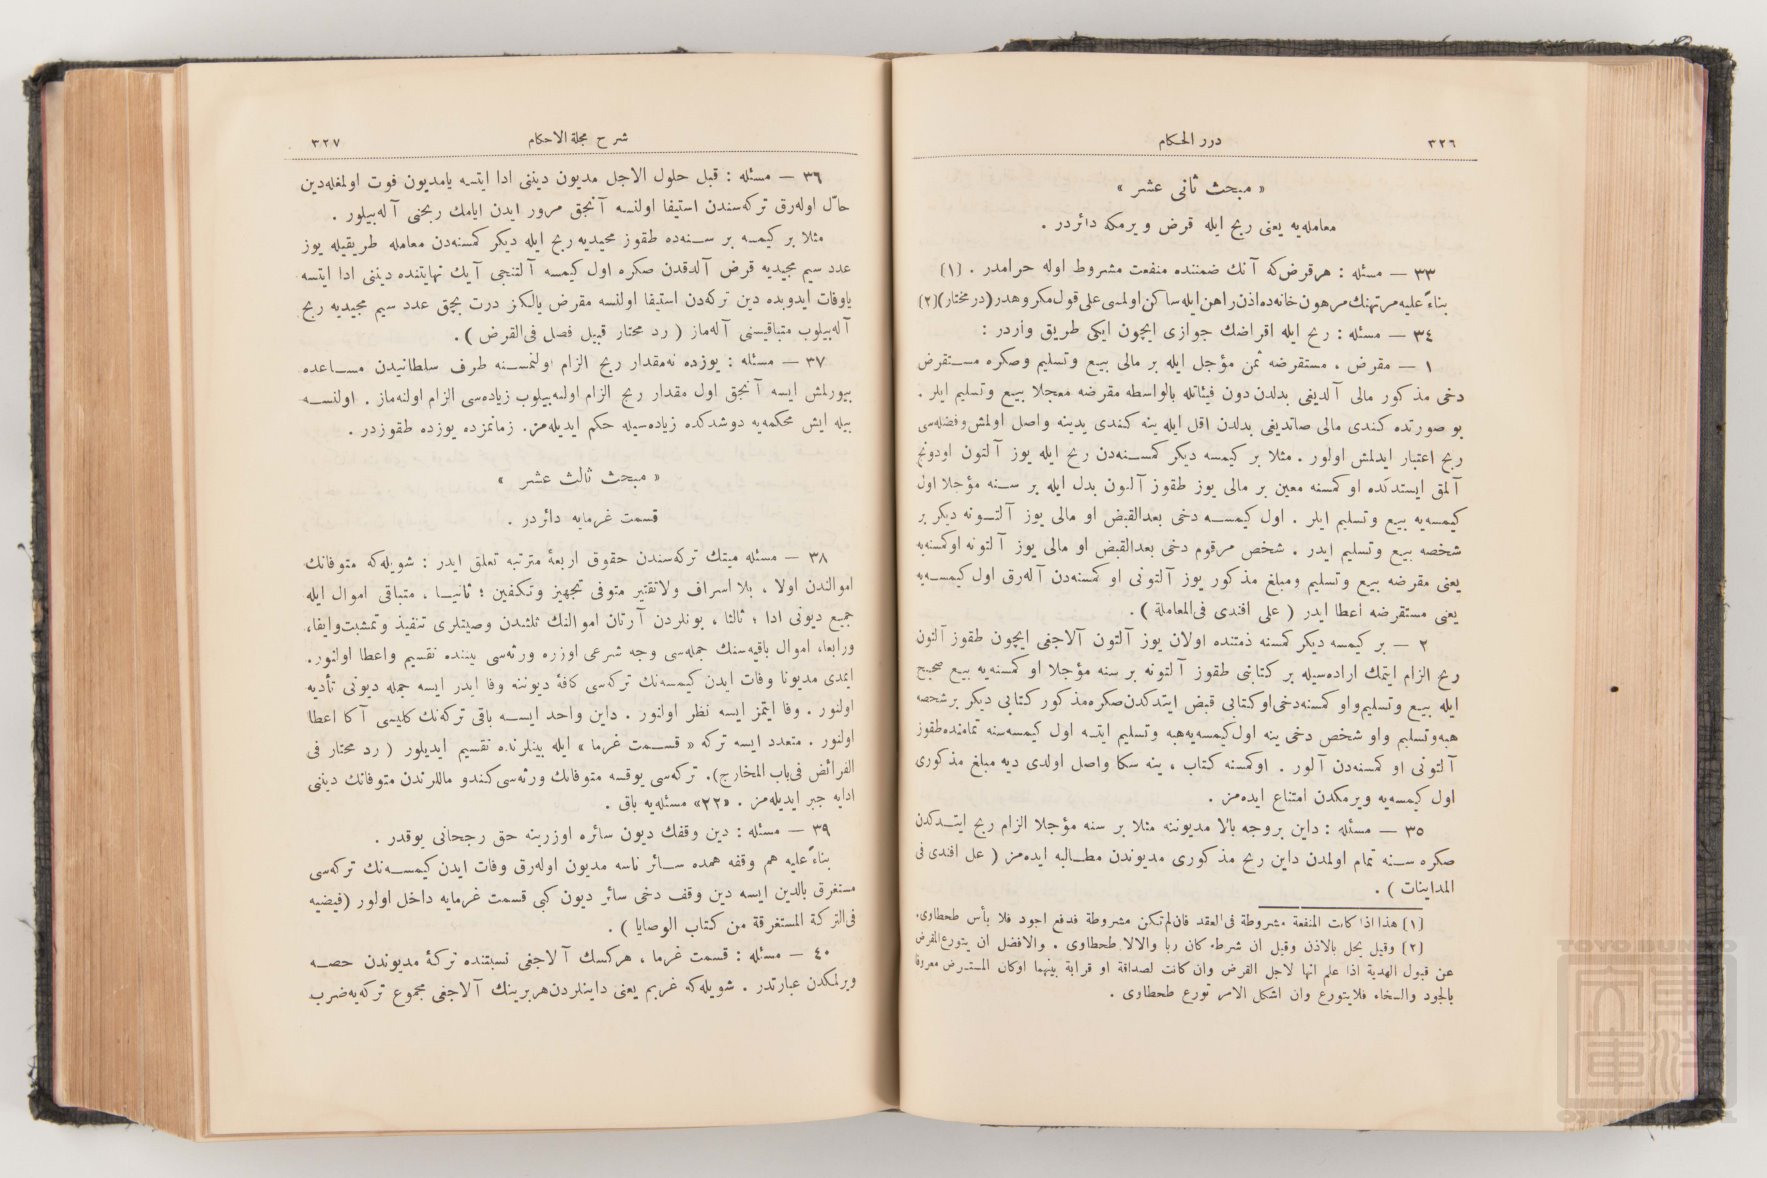 ٣٢٦
درر الحكام
« مبحث ثانی عشر »
معامله‌یه یعنی ربح ایله قرض و یرمكه دائردر .
٣٣ — مسئله : هر قرض كه آنك ضمننده منفعت مشروط اوله حرامدر . [١]
بناءً علیه مرتهنك مرهون خانه‌ده اذن راهن ایله ساكن اولمسی علی قول مكروهدر (در مختار) [٢]
٣٤ — مسئله : ربح ایله اقراضك جوازی ایچون ایكی طریق واردر :
١ — مقرض ، مستقرضه ثمن مؤجل ایله بر مالی بیع و تسلیم وصكره مستقرض
دخی مذكور مالی آلدیغی بدلدن دون فیئاتله بالواسطه مقرضه معجلا بیع و تسلیم ایلر .
بو صورتده كندی مالی صاتدیغی بدلدن اقل ایله ینه كندی یدینه واصل اولمش وفضله‌سی
ربح اعتبار ایدلمش اولور . مثلا بر كیمسه دیكر كمسنه‌دن ربح ایله یوز آلتون اودونج
آلمق ایستدكده او كمسنه معین بر مالی یوز طقوز آلتون بدل ایله بر سنه مؤجلا اول
كیمسه‌یه بیع و تسلیم ایلر . اول كیمسه دخی بعدالقبض او مالی یوز آلتونه دیكر بر
شخصه بیع و تسلیم ایدر . شخص مرقوم دخی بعدالقبض او مالی یوز آلتونه اوكمسنه‌یه
یعنی مقرضه بیع و تسلیم ومبلغ مذكور یوز آلتونی او كمسنه‌دن آله‌رق اول كیمسه‌یه
یعنی مستقرضه اعطا ایدر ( علی افندی فی‌المعاملة ) .
٢ — بر كیمسه دیكر كمسنه ذمتنده اولان یوز آلتون آلاجغی ایچون طقوز آلتون
ربح الزام ایتمك اراده‌سیله بر كتابنی طقوز آلتونه بر سنه مؤجلا او كمسنه‌یه بیع صحیح
ایله بیع وتسلیم واو كمسنه دخی اوكتابی قبض ایتدكدن صكره مذكور كتابی دیكر برشخصه
هبه وتسلیم واو شخص دخی ینه اول كیمسه‌یه هبه و تسلیم ایتسه اول كیمسه سنه تمامنده طقوز
آلتونی او كمسنه‌دن آلور . اوكمسنه كتاب ، ینه سكا واصل اولدی دیه مبلغ مذكوری
اول كیمسه‌یه ویرمكدن امتناع ایده‌مز .
٣٥ — مسئله : داین بروجه بالا مدیوننه مثلا بر سنه مؤجلا الزام ربح ایتدكدن
صكره سنه تمام اولمدن داین ربح مذكوری مدیوندن مطالبه ایده‌مز ( علی افندی فی
المداینات ) .
[١] هذا اذا كانت المنفعة مشروطة فی العقد فان لم تكن مشروطة فدفع اجود فلا بأس طحطاوی.
[٢] وقیل یحل بالاذن وقیل ان شرطه كان ربا والالا طحطاوی . والافضل ان یتورع المقرض
عن قبول الهدیة اذا علم انها لاجل القرض وان كانت لصداقة او قرابة بینهما اوكان المستقرض معروفا
بالجود والسخاء فلایتورع وان اشكل الامر تورع طحطاوی .
شرح مجلة الاحكام
٣٢٧
٣٦ — مسئله : قبل حلول الاجل مدیون دیننی ادا ایتسه یامدیون فوت اولمغله دین
حالّ اوله‌رق تركه‌سندن استیفا اولنسه آنجق مرور ایدن ایامك ربحنی آله‌بیلور .
مثلا بر كیمسه بر سنه‌ده طقوز مجیدیه ربح ایله دیكر كمسنه‌دن معامله طریقیله یوز
عدد سیم مجیدیه قرض آلدقدن صكره اول كیمسه آلتنجی آیك نهایتنده دیننی ادا ایتسه
یاوفات ایدوبده دین تركه‌دن استیفا اولنسه مقرض یالكز درت بچق عدد سیم مجیدیه ربح
آله‌بیلوب متباقیسنی آله‌ماز ( رد مختار قبیل فصل فی‌القرض ) .
٣٧ — مسئله : یوزده نه‌مقدار ربح الزام اولنمسنه طرف سلطانیدن مساعده
بیورلمش ایسه آنجق اول مقدار ربح الزام اولنه‌بیلوب زیاده‌سی الزام اولنه‌ماز . اولنسه
بیله ایش محكمه‌یه دوشدكده زیاده‌سیله حكم ایدیله‌مز. زمانمزده یوزده طقوزدر .
« مبحث ثالث عشر »
قسمت غرمایه دائردر .
٣٨ — مسئله میتك تركه‌سندن حقوق اربعهٔ مترتبه تعلق ایدر : شویله‌كه متوفانك
اموالندن اولا ، بلا اسراف ولاتقتیر متوفی تجهیز وتكفین ؛ ثانیا ، متباقی اموال ایله
جمیع دیونی ادا ؛ ثالثا ، بونلردن آرتان اموالنك ثلثندن وصیتلری تنفیذ وتمشیت وایفا،
ورابعا، اموال باقیه‌سنك جمله‌سی وجه شرعی اوزره ورثه‌سی بیننده تقسیم واعطا اولنور.
ایمدی مدیونا وفات ایدن كیمسه‌نك تركه‌سی كافهٔ دیوننه وفا ایدر ایسه جمله دیونی تأدیه
اولنور . وفا ایتمز ایسه نظر اولنور . داین واحد ایسه باقی تركه‌نك كلیسی آكا اعطا
اولنور . متعدد ایسه تركه « قسمت غرما » ایله بینلرنده تقسیم ایدیلور ( رد مختار فی
الفرائض فی‌باب المخارج). تركه‌سی یوقسه متوفانك ورثه‌سی كندو ماللرندن متوفانك دیننی
ادایه جبر ایدیله‌مز . «٢٢» مسئله‌یه باق .
٣٩ — مسئله : دین وقفك دیون سائره اوزرینه حق رجحانی یوقدر .
بناءً علیه هم وقفه همده سائر ناسه مدیون اوله‌رق وفات ایدن كیمسه‌نك تركه‌سی
مستغرق بالدین ایسه دین وقف دخی سائر دیون كبی قسمت غرمایه داخل اولور (فیضیه
فی‌التركة المستغرقة من كتاب الوصایا ) .
٤٠ — مسئله : قسمت غرما ، هركسك آلاجغی نسبتنده تركهٔ مدیوندن حصه
ویرلمكدن عبارتدر . شویله‌كه غریم یعنی داینلردن هربرینك آلاجغی مجموع تركه‌یه ضرب
TOYO BUNKO